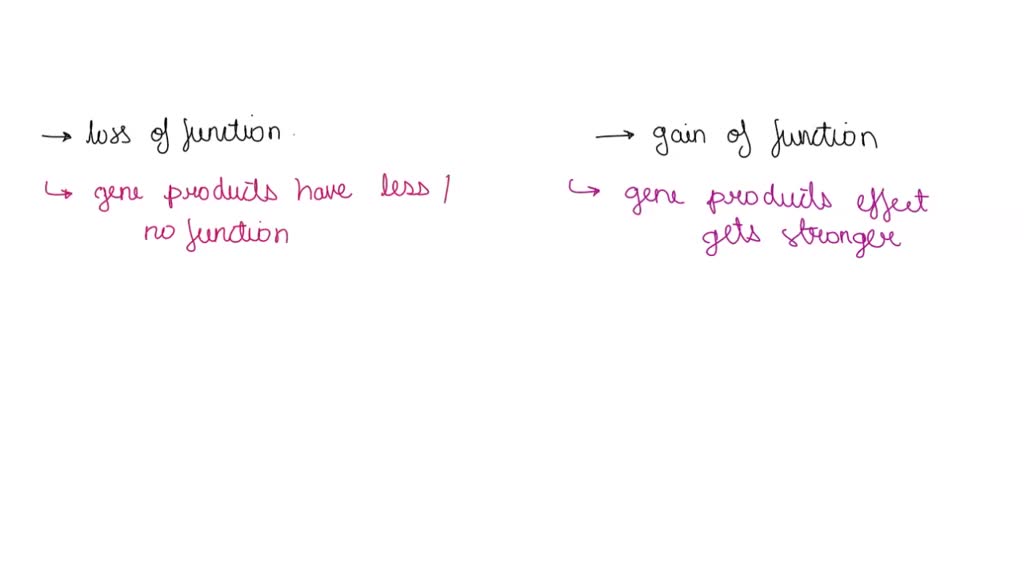 → loss of function
↳ gene products have less /
no function
→ gain of function
↳ gene products effect
gets stronger